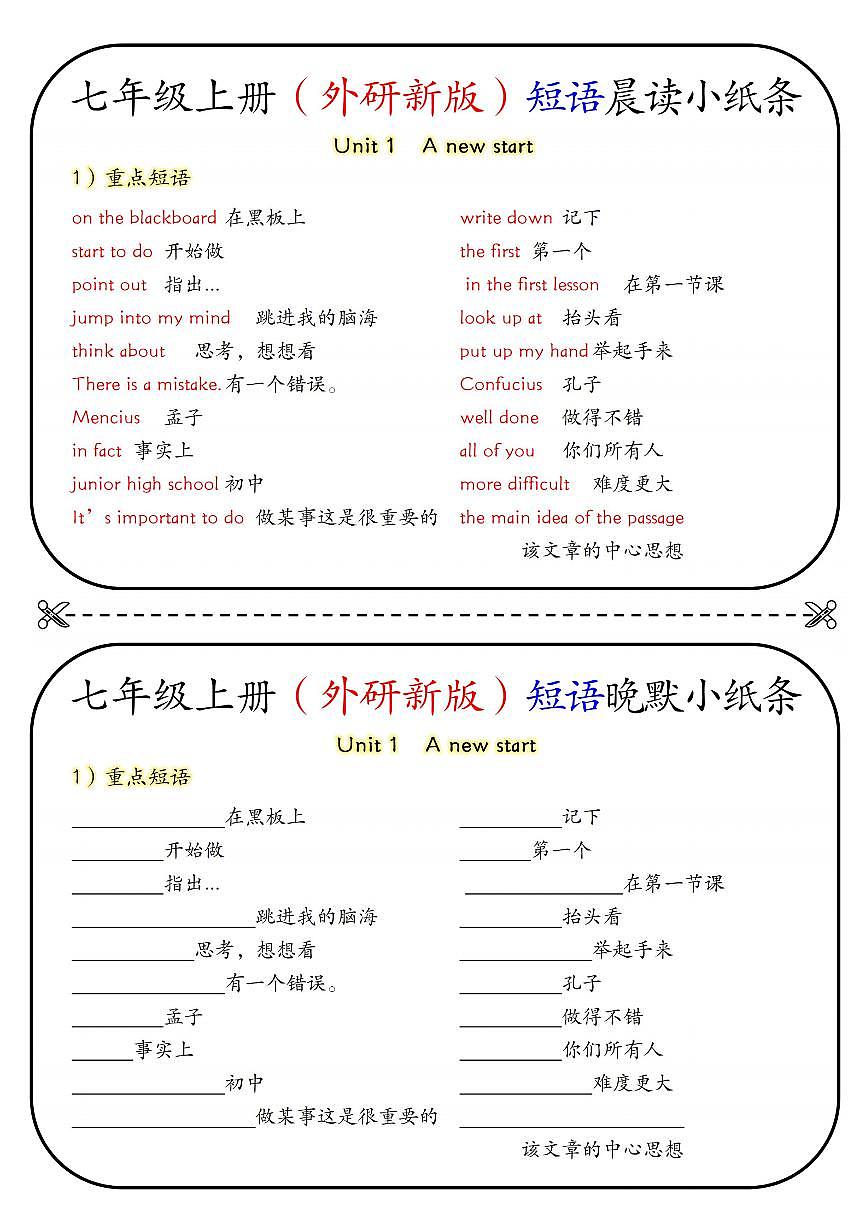 七年级上册（外研新版）短语晨读小纸条
Unit 1 A new start
1）重点短语
on the blackboard 在黑板上 write down 记下
start to do 开始做 the first 第一个
point out 指出... in the first lesson 在第一节课
jump into my mind 跳进我的脑海 look up at 抬头看
think about 思考，想想看 put up my hand 举起手来
There is a mistake. 有一个错误。 Confucius 孔子
Mencius 孟子 well done 做得不错
in fact 事实上 all of you 你们所有人
junior high school 初中 more difficult 难度更大
It’s important to do 做某事这是很重要的 the main idea of the passage
该文章的中心思想
七年级上册（外研新版）短语晚默小纸条
Unit 1 A new start
1）重点短语
_______________在黑板上 __________记下
_________开始做 _______第一个
_________指出... _______________在第一节课
__________________跳进我的脑海 __________抬头看
____________思考，想想看 _____________举起手来
_______________有一个错误。 __________孔子
_________孟子 __________做得不错
______事实上 __________你们所有人
_______________初中 _____________难度更大
__________________做某事这是很重要的 ______________________
该文章的中心思想